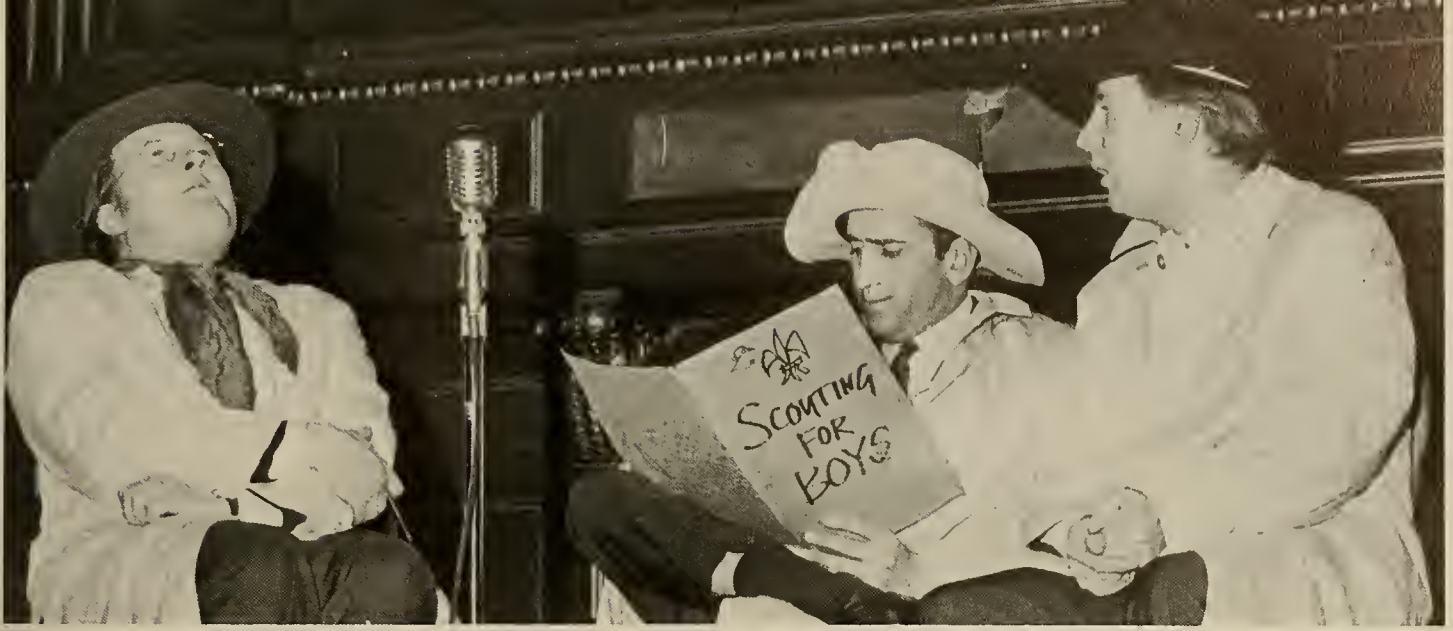 SCOUTING
FOR
BOYS